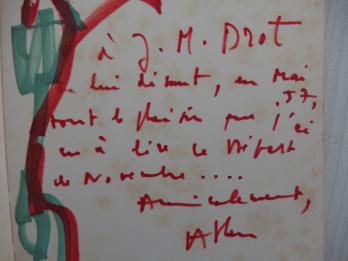 à J. M. Drot
lui disant, en Mai
57,
tout le plaisir que j'ai
eu à lire ce Départ
de Novembre ....
Amicalement,